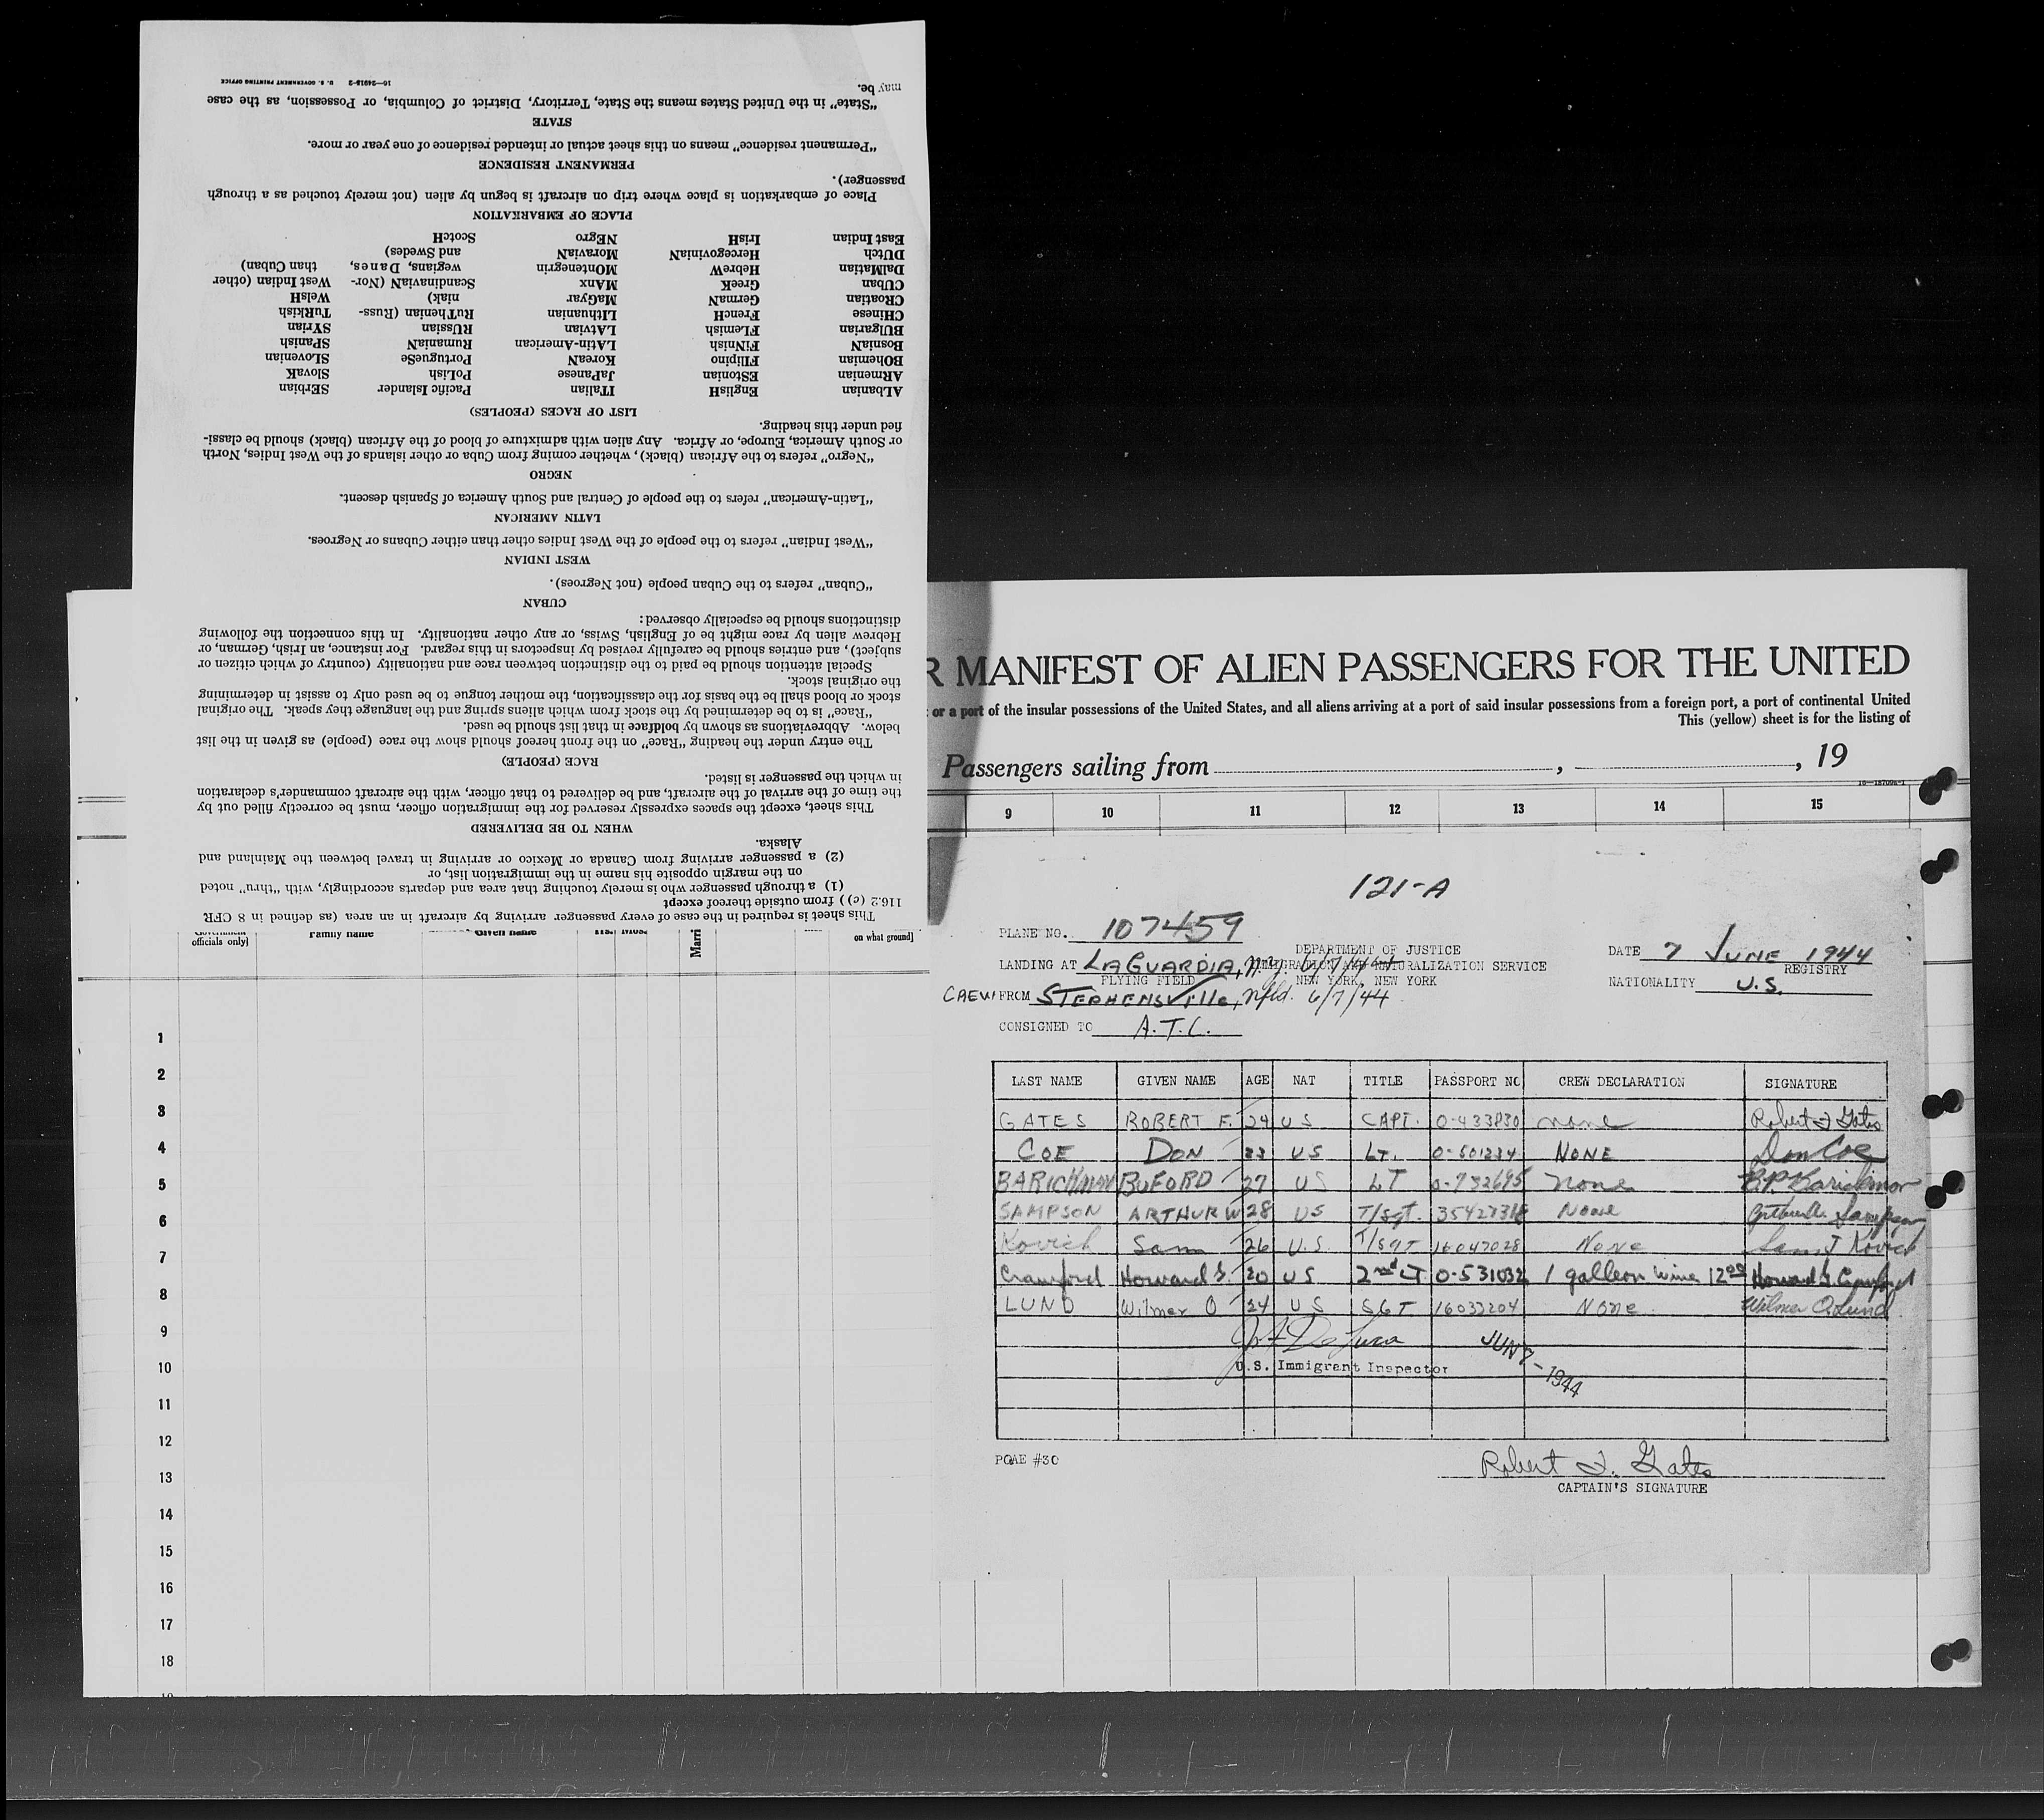 This sheet is required in the case of every passenger arriving by aircraft in an area (as defined in 8 CFR
116.2 (c)) from outside thereof except
(1) a through passenger who is merely touching that area and departs accordingly, with "thru" noted
on the margin opposite his name in the immigration list, or
(2) a passenger arriving from Canada or Mexico or arriving in travel between the Mainland and
Alaska.
WHEN TO BE DELIVERED
This sheet, except the spaces expressly reserved for the immigration officer, must be correctly filled out by
the time of the arrival of the aircraft, and be delivered to that officer, with the aircraft commander's declaration
in which the passenger is listed.
RACE (PEOPLE)
The entry under the heading "Race" on the front hereof should show the race (people) as given in the list
below. Abbreviations as shown by boldface in that list should be used.
"Race" is to be determined by the stock from which aliens spring and the language they speak. The original
stock or blood shall be the basis for the classification, the mother tongue to be used only to assist in determining
the original stock.
Special attention should be paid to the distinction between race and nationality (country of which citizen or
subject), and entries should be carefully revised by inspectors in this regard. For instance, an Irish, German, or
Hebrew alien by race might be of English, Swiss, or any other nationality. In this connection the following
distinctions should be especially observed:
CUBAN
"Cuban" refers to the Cuban people (not Negroes).
WEST INDIAN
"West Indian" refers to the people of the West Indies other than either Cubans or Negroes.
LATIN AMERICAN
"Latin-American" refers to the people of Central and South America of Spanish descent.
NEGRO
"Negro" refers to the African (black), whether coming from Cuba or other islands of the West Indies, North
or South America, Europe, or Africa. Any alien with admixture of blood of the African (black) should be classi-
fied under this heading.
LIST OF RACES (PEOPLES)
ALbanian EnglisH ITalian Pacific Islander SErbian
ARmenian EStonian JaPanese PoLish SlovaK
BOhemian FIlipino KoreaN PortugueSe SLOvenian
BosniaN FiNnish LAtin-American RumaniaN SPanish
BUlgarian FLemish LAtvian RUssian SYrian
CHinese FrencH LIthuanian RuThenian (Russ- TuRkish
CRoatian GermaN MaGyar niak) WelsH
CUban GreeK MAnx ScandinaviaN (Nor- West Indian (other
DalMatian HebreW MOntenegrin wegians, Danes, than Cuban)
DUtch HercegoviniaN MoraviaN and Swedes)
East Indian IrisH NEgro ScotcH
PLACE OF EMBARKATION
Place of embarkation is place where trip on aircraft is begun by alien (not merely touched as a through
passenger).
PERMANENT RESIDENCE
"Permanent residence" means on this sheet actual or intended residence of one year or more.
STATE
"State" in the United States means the State, Territory, District of Columbia, or Possession, as the case
may be.
16—24918-2 U. S. GOVERNMENT PRINTING OFFICE
R MANIFEST OF ALIEN PASSENGERS FOR THE UNITED
or a port of the insular possessions of the United States, and all aliens arriving at a port of said insular possessions from a foreign port, a port of continental United
This (yellow) sheet is for the listing of
Passengers sailing from , , 19
9 10 11 12 13 14 15
officials only] Family name Given name Yrs. Mos. Marri on what ground]
121-A
PLANE NO. 107459
DEPARTMENT OF JUSTICE
DATE 7 JUNE 1944
LANDING AT LAGUARDIA, N.Y. 6/7/44 IMMIGRATION AND NATURALIZATION SERVICE
REGISTRY
FLYING FIELD NEW YORK, NEW YORK
NATIONALITY U.S.
CREW FROM STEPHENSVille, Nfld. 6/7/44
CONSIGNED TO A.T.C.
LAST NAME GIVEN NAME AGE NAT TITLE PASSPORT NO CREW DECLARATION SIGNATURE
GATES ROBERT F. 24 US CAPT. 0-433830 none Robert F Gates
COE DON 23 US LT. 0-501234 NONE Don Coe
BARICKMAN BUFORD 27 US LT 0-732695 none
SAMPSON ARTHUR W 28 US T/Sgt. None Arthur W. Sampson
Kovich Sam 26 U.S. T/SGT 16047028 None Sam J Kovich
Crawford Howard G. 20 US 2nd LT 0-531032 1 galleon wine 12 00 Howard G. Crawford
LUND Wilmer O 24 US SGT 16033204 None Wilmer O. Lund
U.S. Immigrant Inspector
JUN 7 - 1944
POAE #30
Robert F. Gates
CAPTAIN'S SIGNATURE
1
2
3
4
5
6
7
8
9
10
11
12
13
14
15
16
17
18